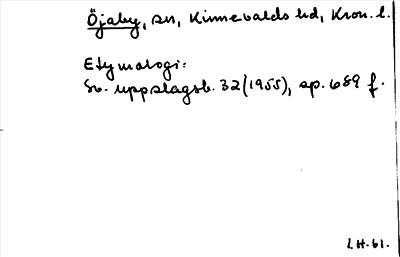 Öjaby, sn, Kinnevalds hd, Kron. l.
Etymologi:
Sv. uppslagsb. 32 (1955), sp. 689 f.
I.H. 61.